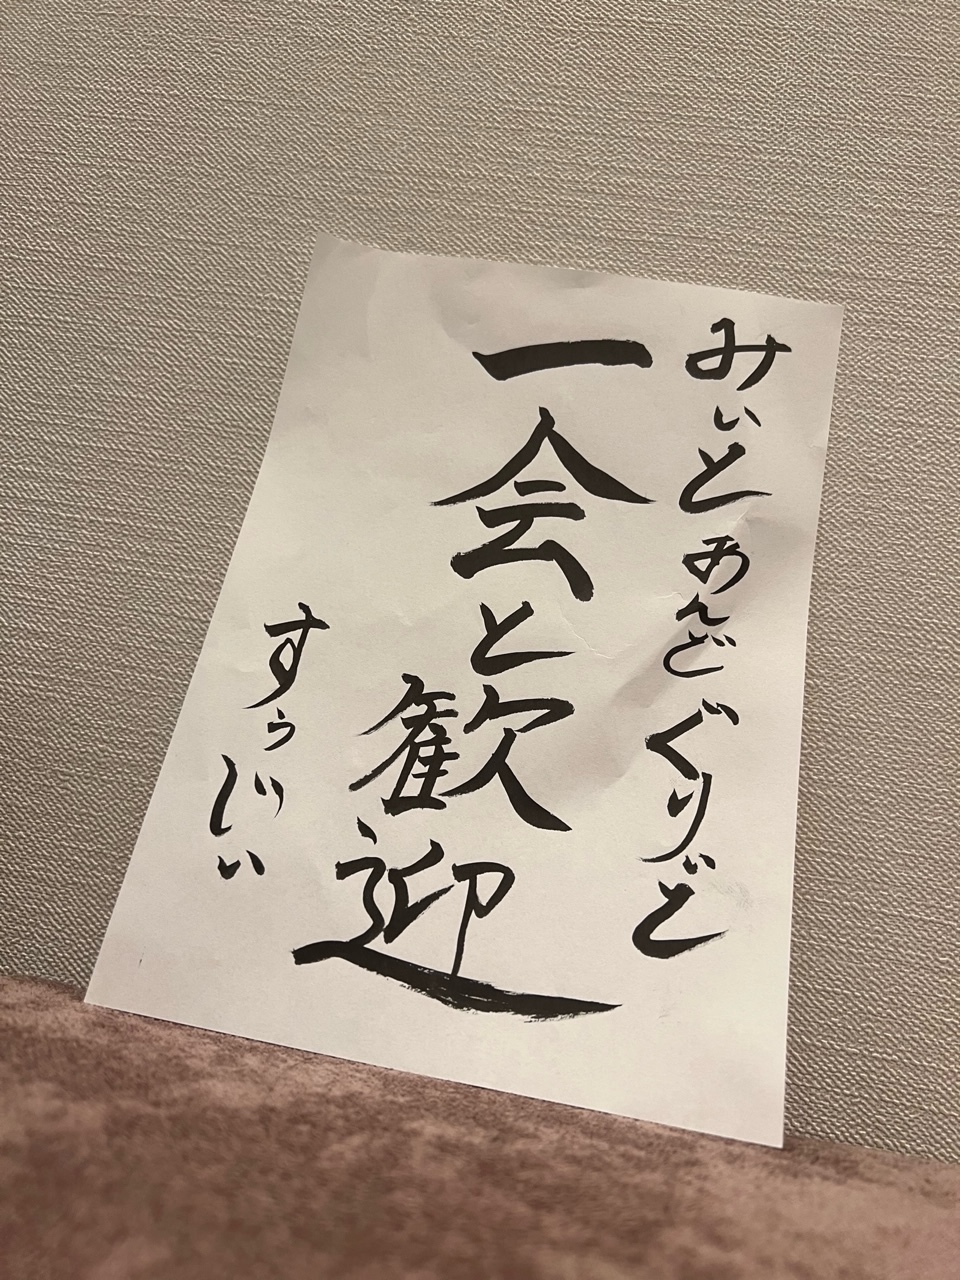 みぃとあんどぐりぃど
一会と歓迎
すぅじぃ